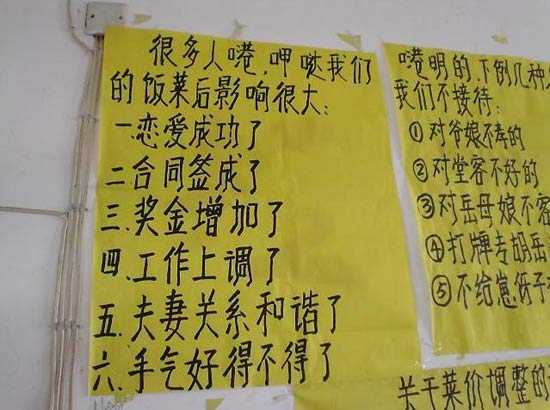 很多人,呷哒我们
的饭菜后影响很大:
一.恋爱成功了
二.合同签成了
三.奖金增加了
四.工作上调了
五.夫妻关系和谐了
六.手气好得不得了
明的,下例几种
我们不接待:
①对爷娘不孝的
②对堂客不好的
③对岳母娘不客
④打牌专胡岳
⑤不给崽伢子
关于菜价调整的